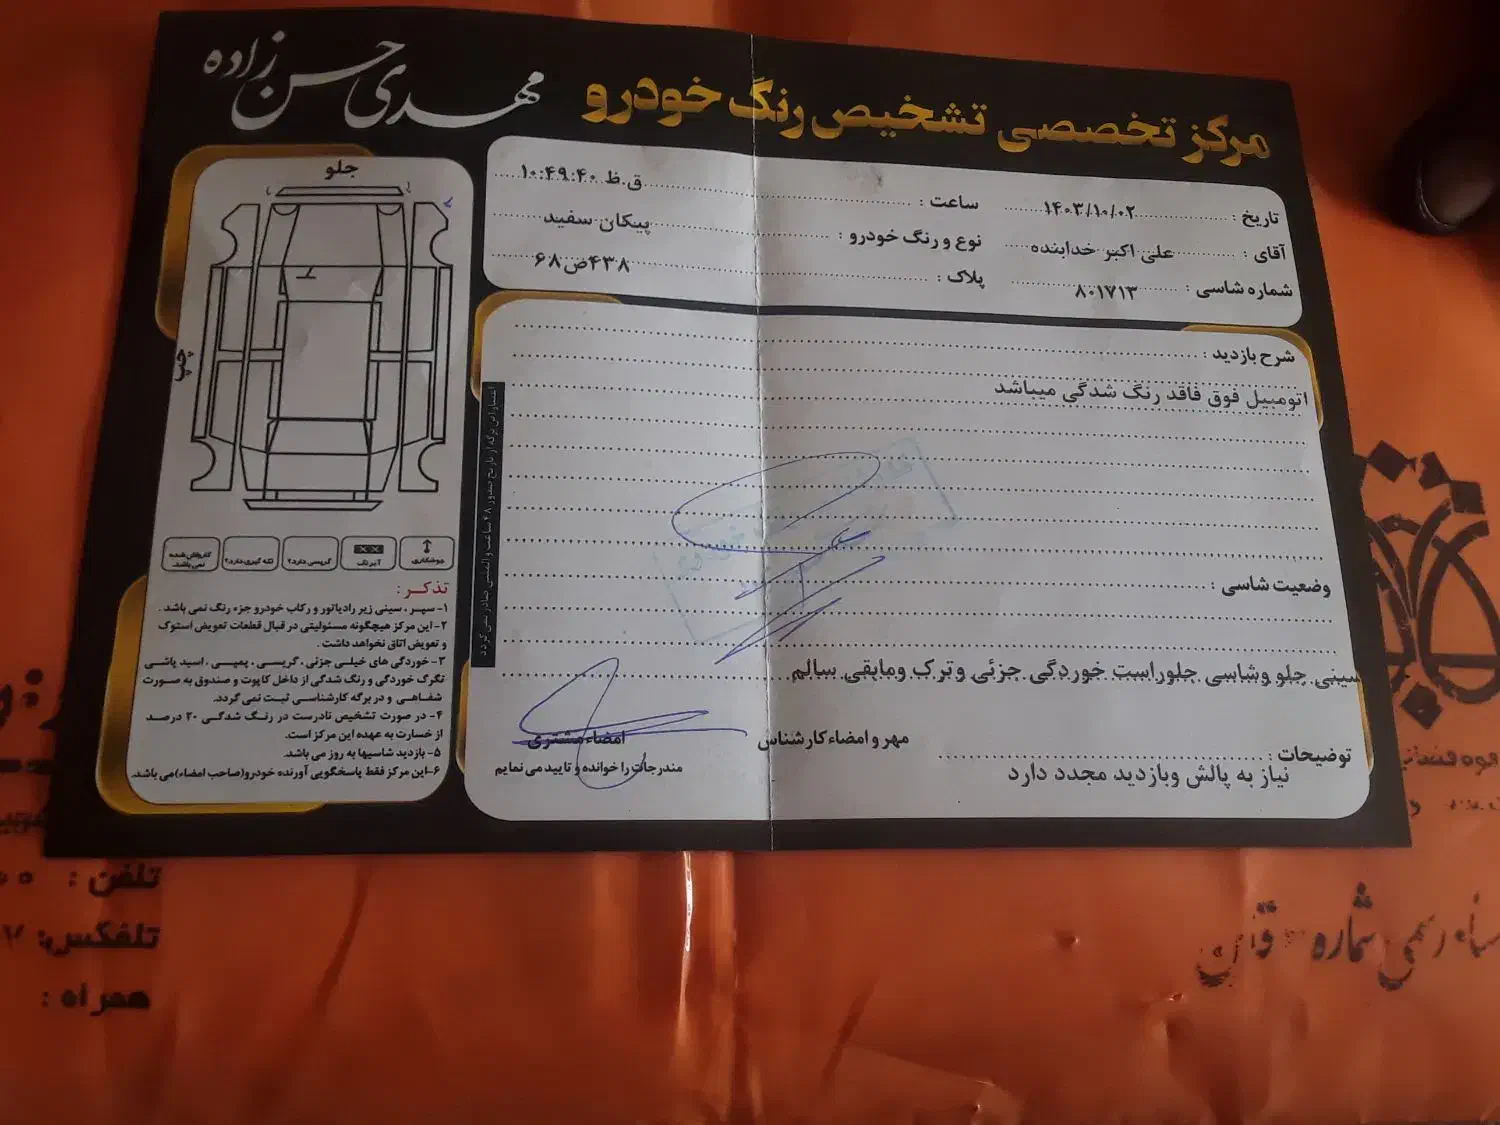 مهدی حسن زاده
مرکز تخصصی تشخیص رنگ خودرو
تاریخ : ۱۴۰۳/۱۰/۰۲
ساعت : ۱۰:۴۹:۴۰ ق.ظ
آقای : علی اکبر خدابنده
نوع و رنگ خودرو : پیکان سفید
شماره شاسی : ۸۰۱۷۱۳
پلاک : ۴۳۸ض۶۸
شرح بازدید :
اتومبیل فوق فاقد رنگ شدگی میباشد
وضعیت شاسی :
سینی جلو وشاسی جلوراست خوردگی جزئی وترک ومابقی سالم
مهر و امضاء کارشناس
امضاء مشتری
مندرجات را خوانده و تایید می نمایم
توضیحات :
نیاز به پالش وبازدید مجدد دارد
اعتبار این برگه از تاریخ صدور ۴۸ ساعت و المثنی صادر نمی گردد
جلو
چپ
جوشکاری
آبرنگ
گریسی دارد؟
لکه گیری دارد؟
کارواش شده نمی باشد.
تذکر :
۱- سپر ، سینی زیر رادیاتور و رکاب خودرو جزء رنگ نمی باشد .
۲- این مرکز هیچگونه مسئولیتی در قبال قطعات تعویض استوک
و تعویض اتاق نخواهد داشت .
۳- خوردگی های خیلی جزئی ، گریسی ، پمپی ، اسید پاشی
تگرگ خوردگی و رنگ شدگی از داخل کاپوت و صندوق به صورت
شفاهی و در برگه کارشناسی ثبت نمی گردد.
۴- در صورت تشخیص نادرست در رنگ شدگی ۲۰ درصد
از خسارت به عهده این مرکز است.
۵- بازدید شاسیها به روز می باشد.
۶-این مرکز فقط پاسخگویی آورنده خودرو(صاحب امضاء)می باشد.
تلفن :
تلفکس:
همراه :
رسمی شماره